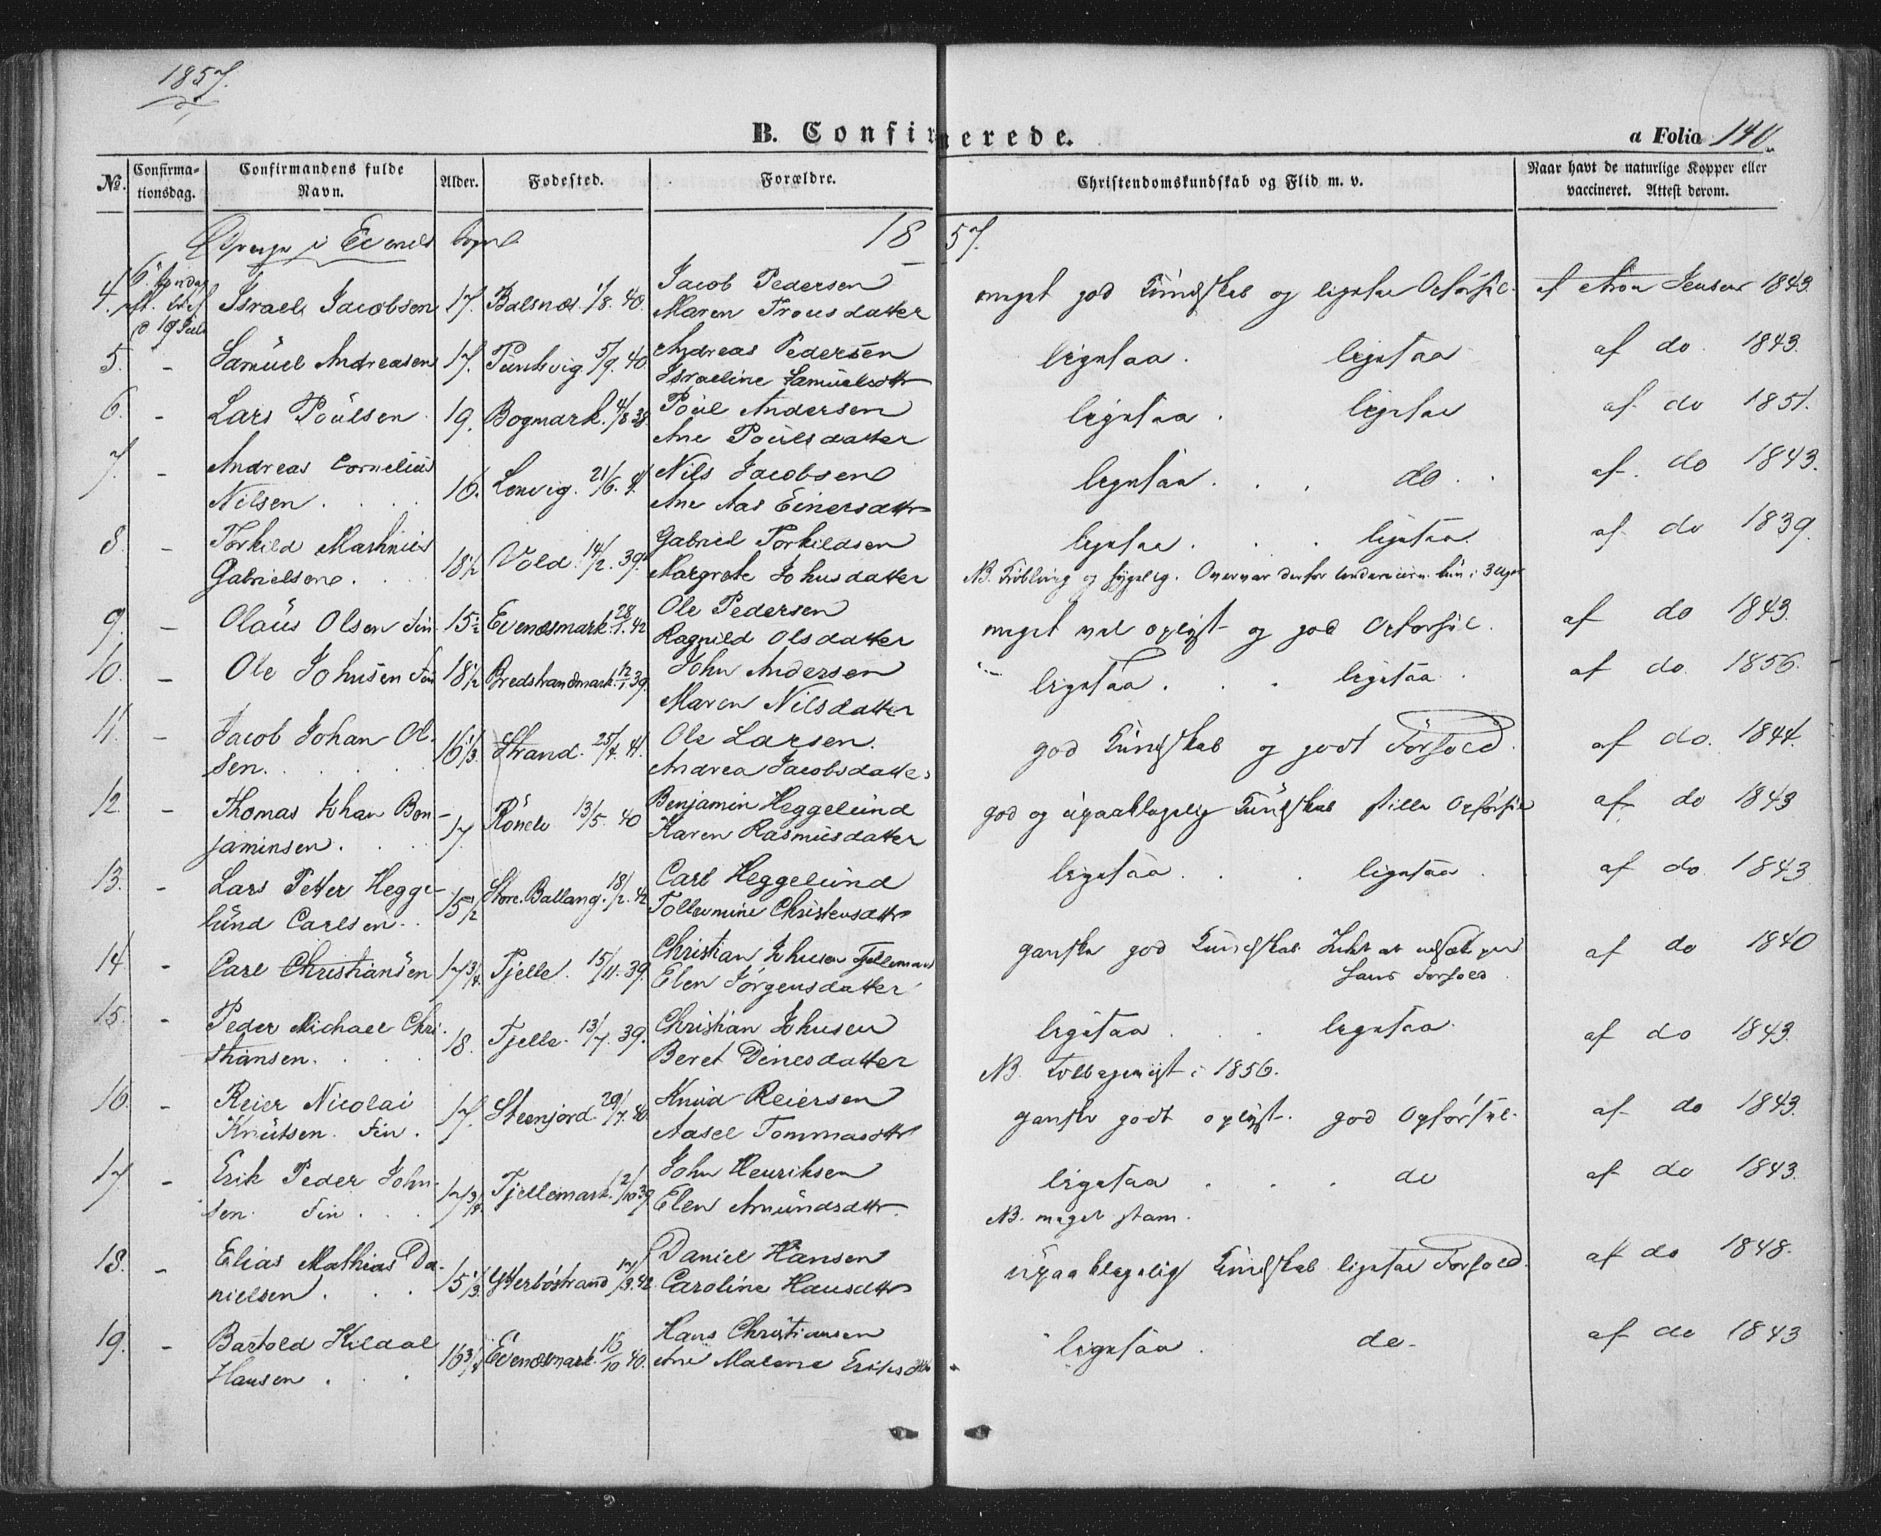 1857.
B. Confirmerede.
a Folio 140.
No. Confirmationsdag. Confirmandens fulde Navn. Alder. Fødested. Forældre. Christendomskundskab og Flid m. v. Naar havt de naturlige Kopper eller vaccineret. Attest derom.
Drenge i Evenes Sogn 1857.
4. 6 Søndag Israel Jacobsen 17. Balsnæs 1/8. 40. Jacob Pedersen
Maren Tronsdatter
meget god Kundskab og ligesaa Opførsel. af Aron Jensen 1843.
5. - Samuel Andreasen 17. 5/9. 40. Andreas Pedersen
Israeline Samuelsdttr
ligesaa. ligesaa af do. 1843.
6. - Lars Poulsen 19. Bogmark. 4/8 38. Poul Andersen
Ane Poulsdatter
ligesaa. ligesaa af do 1851.
7. - Andreas Cornelius
Nilsen. 16. Lenvig. 21/6. 41. Nils Jacobsen
Ane Aas Einersdttr
ligesaa. . . do. af. do 1843.
8. - Torkild Mathias
Gabrielsen. 18 1/2 Vold. 14/2. 39. Gabriel Torkildsen
Margrete Johnsdatter
ligesaa. . . ligesaa. af do 1839.
NB. og sygelig. derfor kun i 3 Uger
9. - Olaus Olsen Fin 15 1/2 Evenæsmark. 28/1. 42 Ole Pedersen
Ragnild Olsdatter
meget vel oplyst og god Opførsel. af do 1843.
10. - Ole Johnsen Fin 18 1/2 Bredstrandmark. 12/1 39. John Andersen
Maren Nilsdatter
ligesaa. . . ligesaa. af do. 1856.
11. - Jacob Johan Ol-
sen. 16 1/3. Strand. 25/7. 41. Ole Larsen.
Andrea Jacobsdatter
god Kundskab og godt Forhold. af do. 1844.
12. - Thomas Johan Ben-
jaminsen. 17 13/5. 40 Benjamin Heggelund
Karen Rasmusdatter
god og upaaklagelig Kundskab stille Opførsel af do 1843
13. - Lars Petter Hegge-
lund Carlsen. 15 1/2 Store Ballang. 18/2. 42 Carl Heggelund
Christensdttr
ligesaa. . . ligesaa. af do. 1843
14. - Carl Christiansen 17 3/4. Tjelle. 15/11. 39. Christian Johnsen Tjellemark
Elen Jörgensdatter
ganske god Kundskab. Intet at udsætte paa
hans Forhold. af do 1840
15. - Peder Michael Chri-
stiansen. 18. Tjelle. 13/7. 39. Christian Johnsen
Beret Dinesdatter
ligesaa. . . ligesaa. af do 1843.
NB. i 1856.
16. - Reier Nicolai
Knutsen. Fin. 17. Steenjord. 29/7. 40 Knud Reiersen
Aasel Tommasdttr
ganske godt oplyst. god Opførsel. af do 1843.
17. - Erik Peder John-
sen. Fin. 17 3/4. Tjellemark. 2/10 39 John Henriksen
Elen Amundsdttr.
ligesaa . . . do af do 1843.
NB. meget stam.
18. - Elias Mathias Da-
nielsen. 15 1/3. Ytterböstrand Daniel Hansen
Caroline Hansdttr
upaaklagelig Kundskab ligesaa Forhold. af do 1848.
19. - Bartold Kildal
Hansen. 16 3/4 Evenæsmark. 15/10 40. Hans Christiansen
Ane Malene Eriksdttr.
ligesaa. do. af do 1843